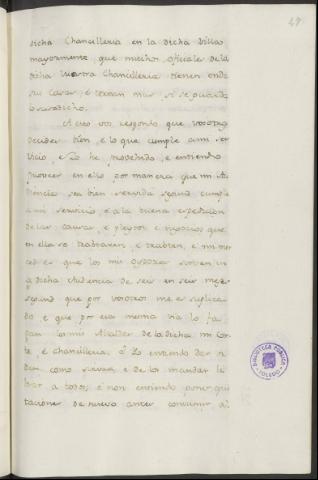 49
dicha Chancilleria en la dicha Villa
mayormente, que muchos oficiales de la
dicha Vuestra Chancilleria tienen onde
sus Casas, é
lo susodicho.
A esto vos respondo que vosotros
decides bien, é lo que cumple á mi ser
vicio, é Yo he provehido, é entiendo
proveer en ello por manera que mi Au
diencia sea bien servida segund cumple
á mi servicio, é á la buena espedicion
de las Causas, é pleytos é negocios que
en ella se trabtaren, é trabten, é mi mer
ced es que los mis Oydores sirvan en
la dicha Audiencia de seis en seis meses
segund que por vosotros me es suplica
do é que por esa mesma via lo fa
gan los mis Alcaldes de la dicha mi Cor
te, é Chancilleria, é Yo entiendo dar or
den como sirvan, é de los mandar li
brar á todos, é non entiendo poner qui
taciones de nuevo antes consumir al
BIBLIOTECA PUBLICA
TOLEDO